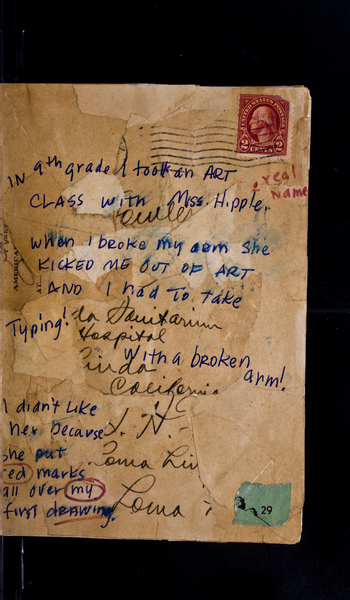 UNITED STATES POSTAGE
2 CENTS 2
IN 9th grade I took an ART
real
Name
CLASS with Miss. Hipple.
Fowler
when I broke my arm she
KICKED ME OUT OF ART
AMERICA
AND I had To take
Typing!
da Sanitarium
Hospital
With a broken
arm!
Linda
California
I didn't Like
her because
S. H.
she put
red marks
Loma Lin
all over my
first drawing.
Loma
29